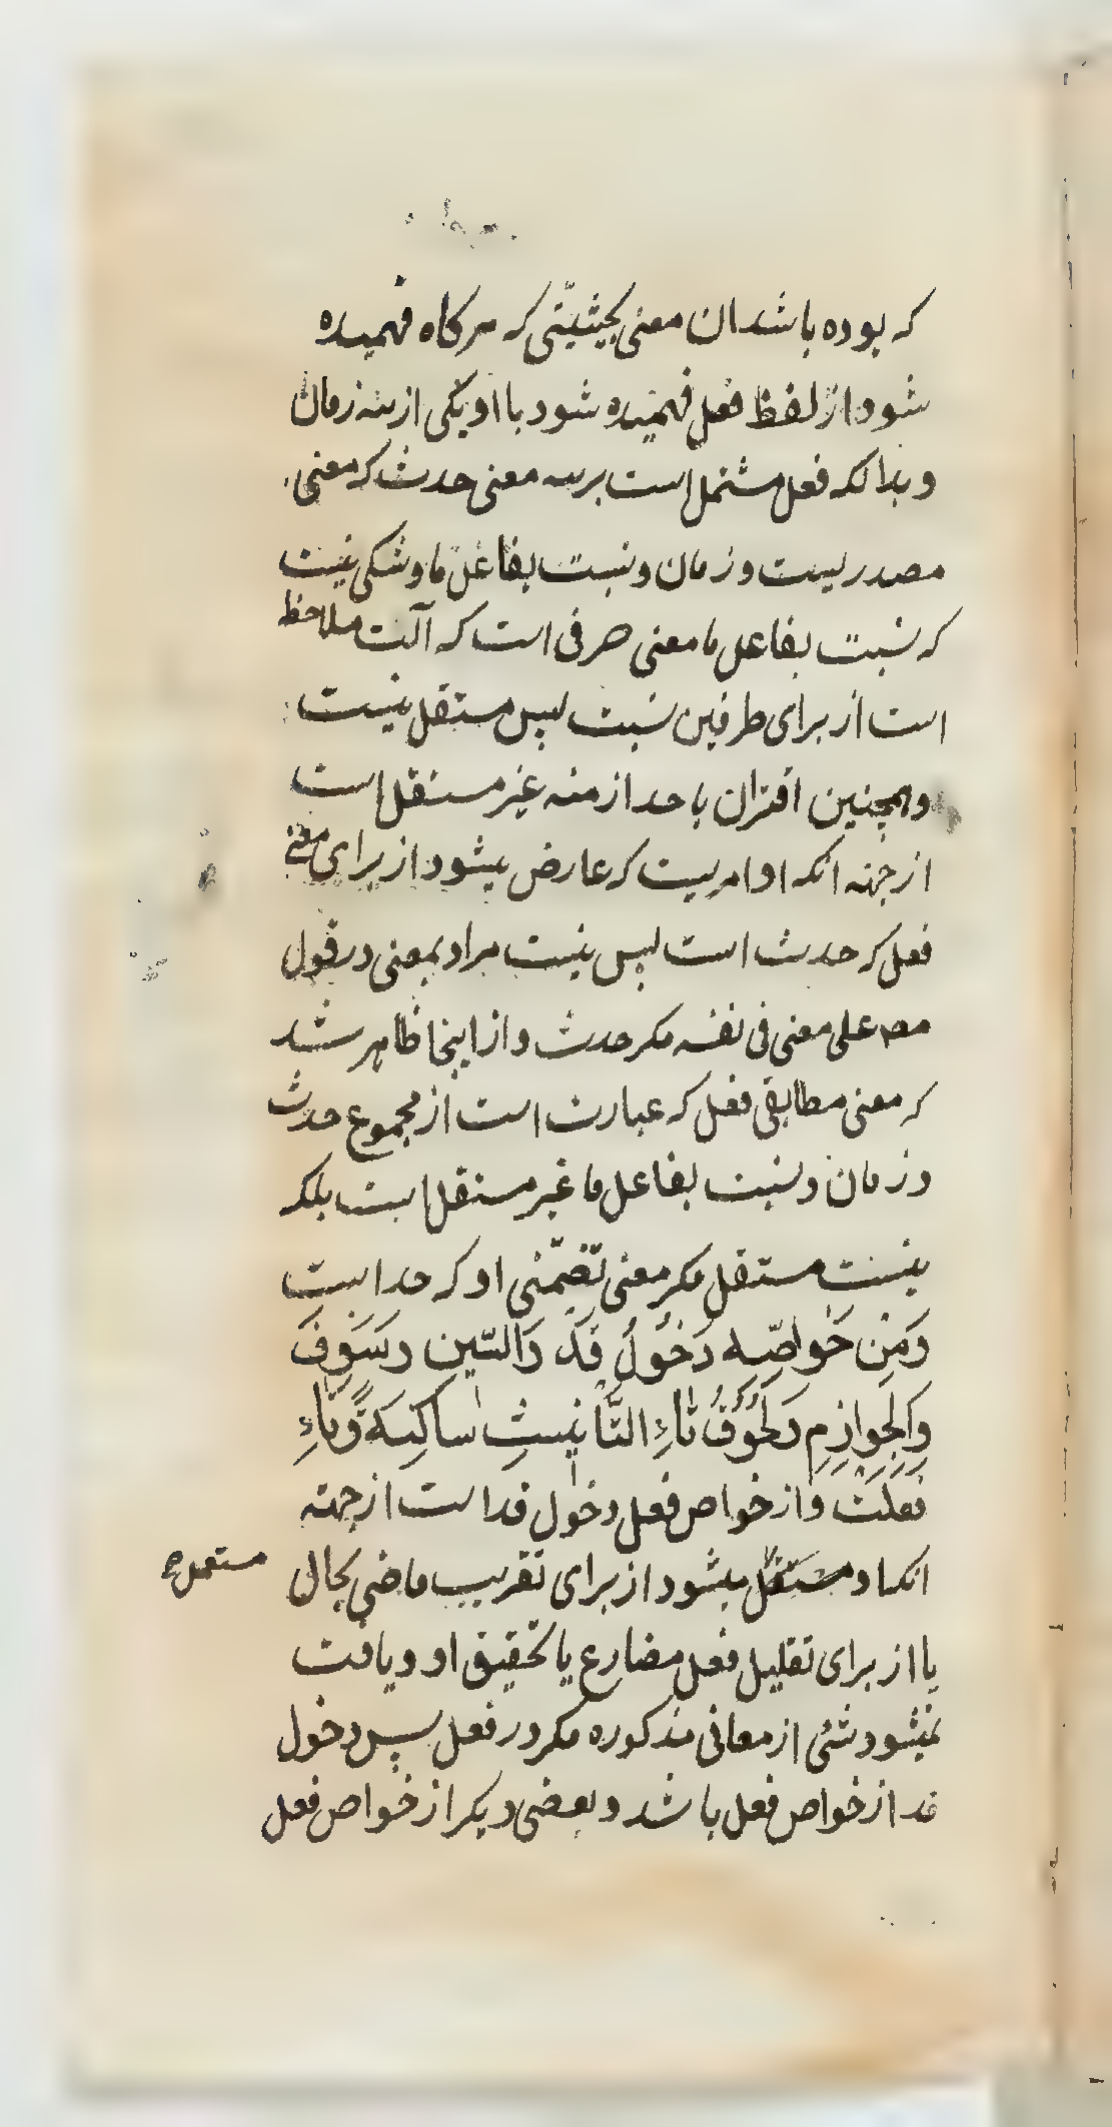 که بوده باشد ان معنی بحیثیّتی که هرکاه فهمیده
شود از لفظ فعل فهمیده شود با او یکی از سه زمان
و بدانکه فعل مشتمل است بر سه معنی حدث که معنی
مصدریست و زمان و نسبت بفاعل ما و شکی نیست
که نسبت بفاعل ما معنی حرفی است که آلت ملاحظه
است از برای طرفین نسبت پس مستقل نیست
و همچنین اقتران باحد ازمنه غیر مستقل است
از جهته انکه او امریست که عارض میشود از برای معنی
فعل که حدث است پس نیست مراد بمعنی در قول
مصه علی معنی فی نفسه مکر حدث و از اینجا ظاهر شد
که معنی مطابقی فعل که عبارت است از مجموع حدث
و زمان و نسبت بفاعل ما غیر مستقل است بلکه
نیست مستقل مکر معنی تضمّنی او که حد است
وَمِن خَواصِّه دَخُولُ قَدْ وَالسّین وسَوفَ
وَالجَوازِمِ وَلحُوُقُ تاءِ التَّانیثِ ساکِنَةً وَتاءِ
فَعَلَتْ و از خواص فعل دخول قد است از جهته
انکه او مستقل میشود از برای تقریب ماضی بحال مستعمل
یا از برای تقلیل فعل مضارع یا تحقیق او و یافت
نمیشود شئی از معانی مذکوره مکر در فعل پس دخول
قد از خواص فعل باشد و بعضی دیکر از خواص فعل